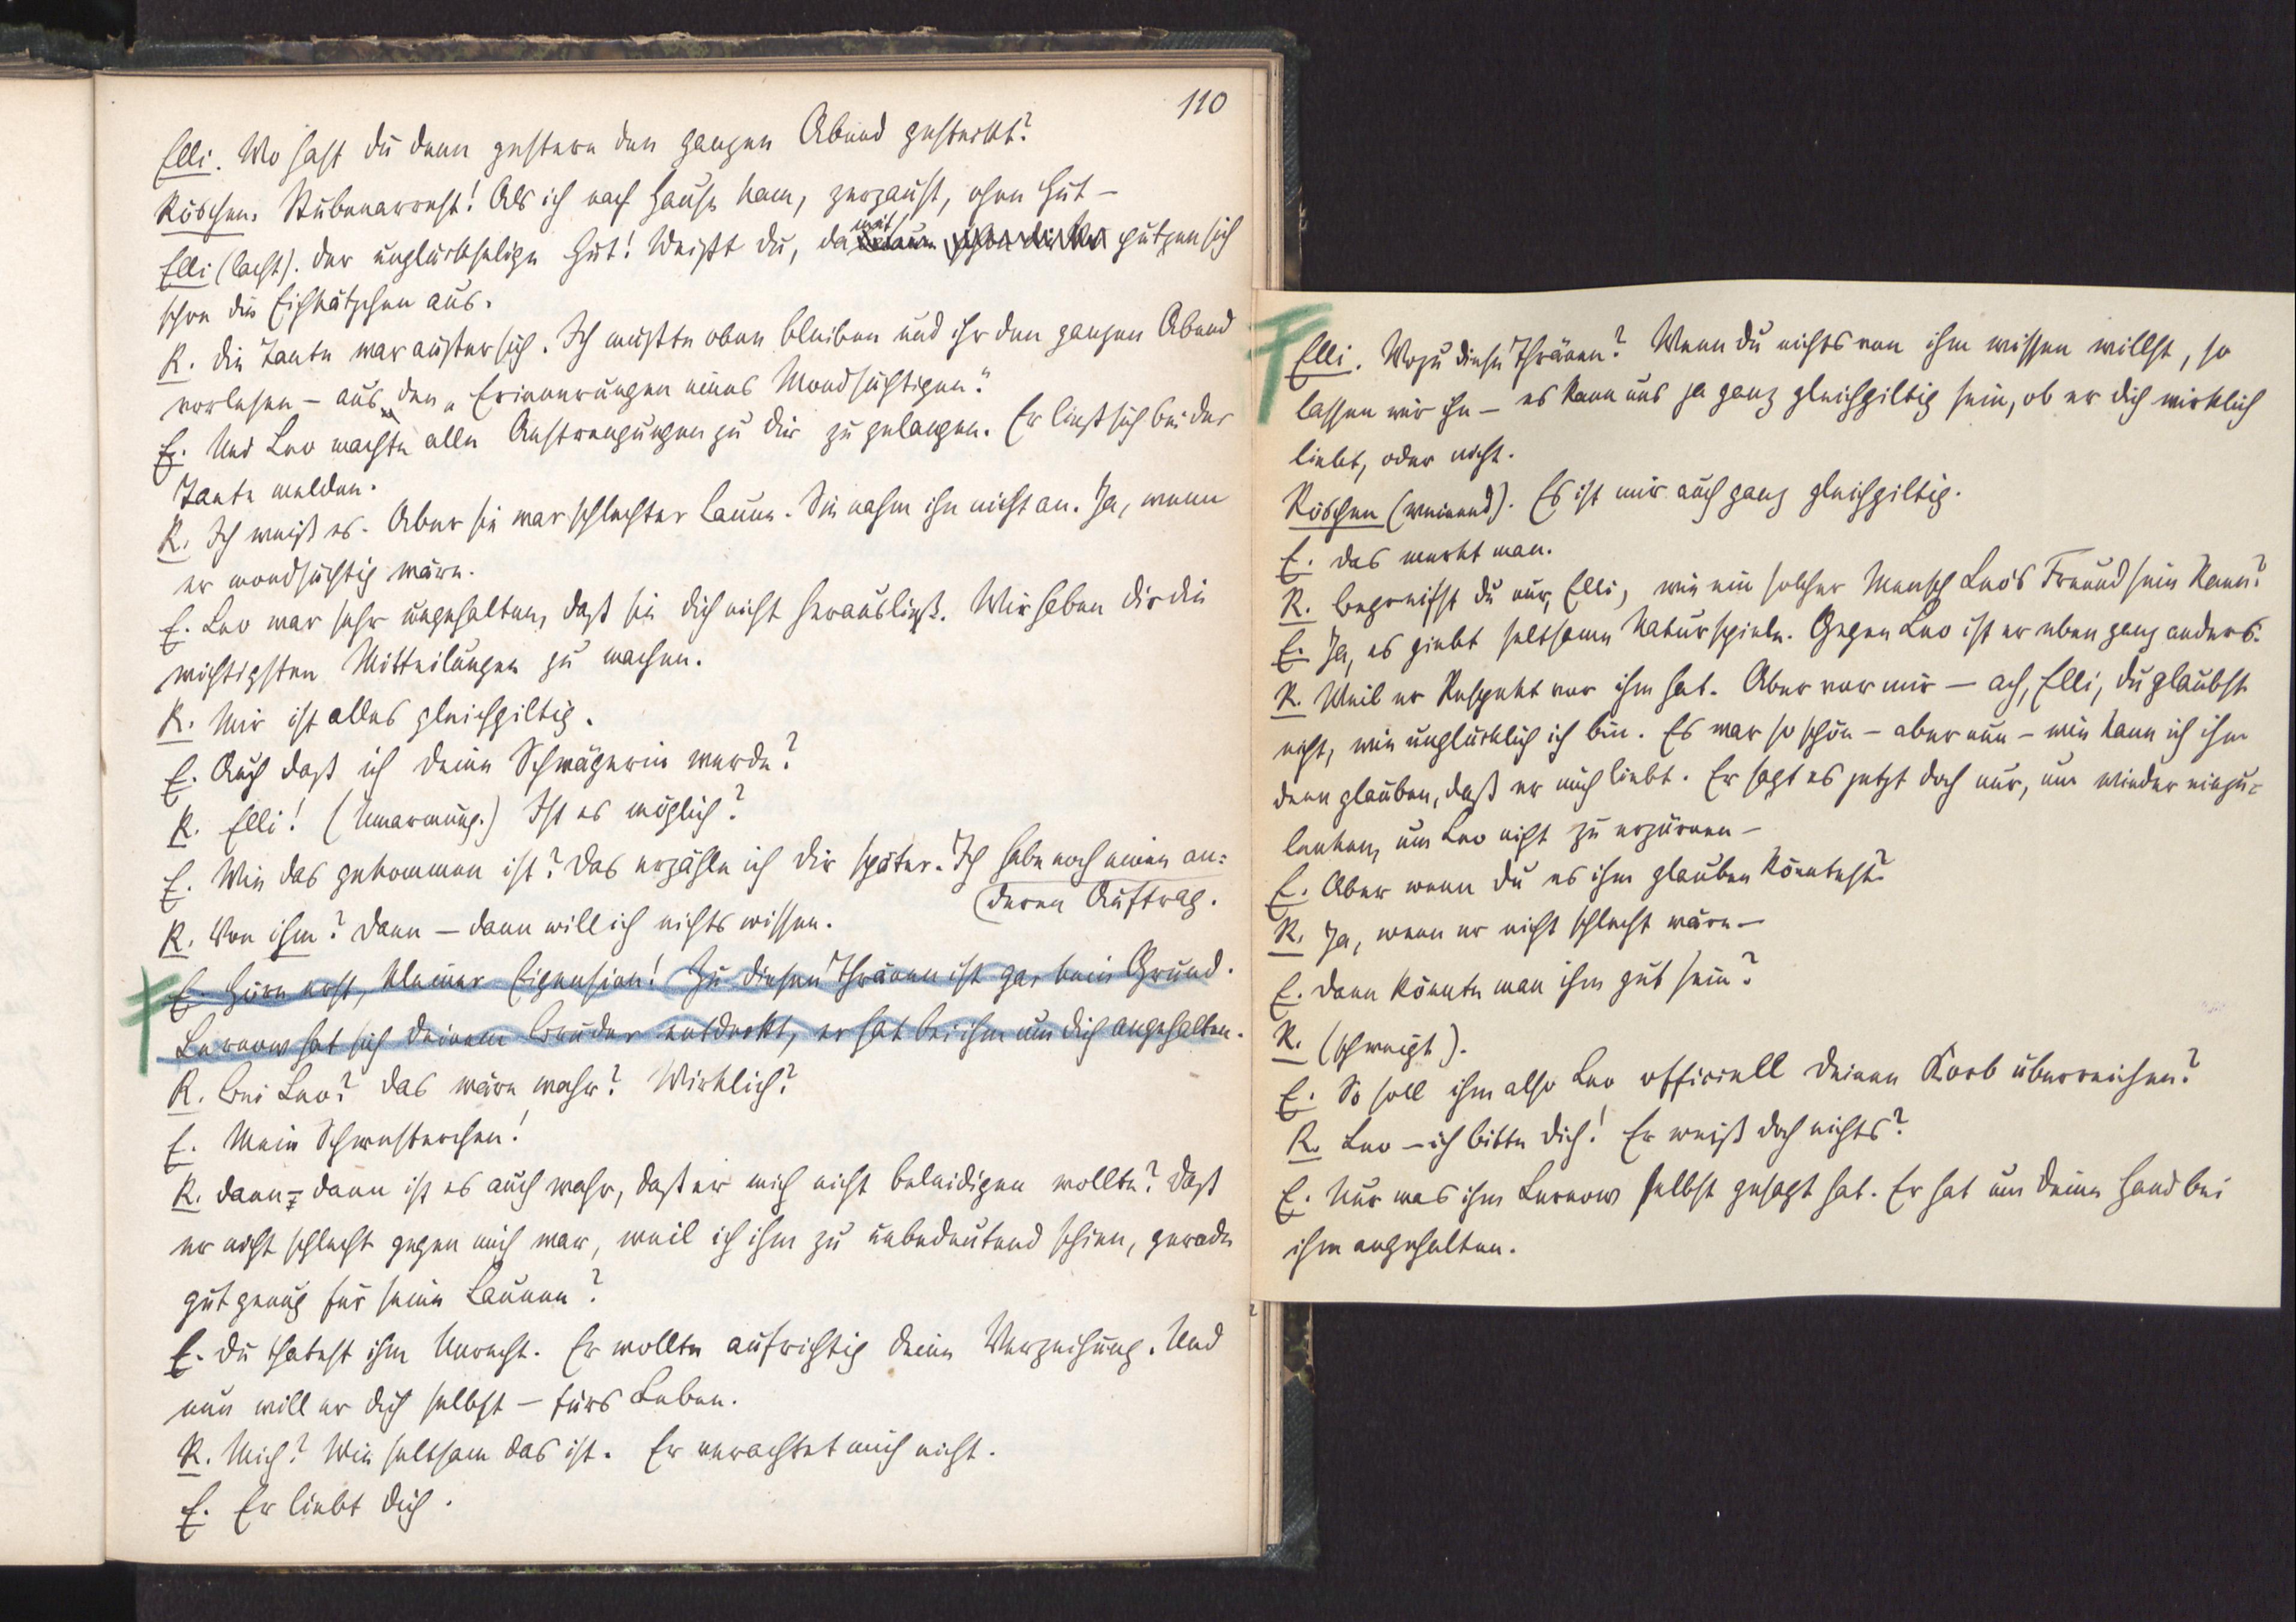 110
Elli. Wo hast du denn gestern den ganzen Abend gesteckt?
Röschen. Stubenarrest! Als ich nach Hause kam, zerzaust, ohne Hut –
Elli (lacht). Der unglückselige Hut! Weißt du, damit putzen sich
schon die Eichkätzchen aus.
R. Die Tante war außer sich. Ich mußte oben bleiben und ihr den ganzen Abend
vorlesen – aus den „Erinnerungen eines Mondsüchtigen."
E. Und Leo machte alle Anstrengungen zu dir zu gelangen. Er ließ sich bei der
Tante melden.
R. Ich weiß es. Aber sie war schlechter Laune. Sie nahm ihn nicht an. Ja, wenn
er mondsüchtig wäre.
E. Leo war sehr ungehalten, daß sie dich nicht herausließ. Wir haben dir die
wichtigsten Mitteilungen zu machen.
R. Mir ist alles gleichgiltig.
E. Auch daß ich deine Schwägerin werde?
R. Elli! (Umarmung.) Ist es möglich?
E. Wie das gekommen ist? Das erzähle ich dir später. Ich habe noch einen an=
deren Auftrag.
R. Von ihm? Dann – dann will ich nichts wissen.
E. Höre erst, kleiner Eigensinn! Zu diesen Thränen ist gar kein Grund.
Lernow hat sich deinem Bruder entdeckt, er hat bei ihm um dich angehalten.
R. Bei Leo? Das wäre wahr? Wirklich?
E. Mein Schwesterchen!
R. Dann – dann ist es auch wahr, daß er mich nicht beleidigen wollte? Daß
er nicht schlecht gegen mich war, weil ich ihm zu unbedeutend schien, gerade
gut genug für seine Launen?
E. Du thatest ihm Unrecht. Er wollte aufrichtig deine Verzeihung. Und
nun will er dich selbst – fürs Leben.
R. Mich? Wie seltsam das ist. Er verachtet mich nicht.
E. Er liebt dich.
Elli. Wozu diese Thränen? Wenn du nichts von ihm wissen willst, so
lassen wir ihn – es kann uns ja ganz gleichgiltig sein, ob er dich wirklich
liebt, oder nicht.
Röschen (weinend). Es ist mir auch ganz gleichgiltig.
E. Das merkt man.
R. Begreifst du nur, Elli, wie ein solcher Mensch Leo's Freund sein kann?
E. Ja, es giebt seltsame Naturspiele. Gegen Leo ist er eben ganz anders.
R. Weil er Respekt vor ihm hat. Aber vor mir – ach, Elli, du glaubst
nicht, wie unglücklich ich bin. Es war so schön – aber nun – wie kann ich ihm
denn glauben, daß er mich liebt. Er sagt es jetzt doch nur, um wieder einzu=
lenken, um Leo nicht zu erzürnen –
E. Aber wenn du es ihm glauben könntest?
R. Ja, wenn er nicht schlecht wäre –
E. Dann könnte man ihm gut sein?
R. (schweigt).
E. So soll ihm also Leo officiell deinen Korb überreichen?
R. Leo – ich bitte dich! Er weiß doch nichts?
E. Nur was ihm Lernow selbst gesagt hat. Er hat um deine Hand bei
ihm angehalten.